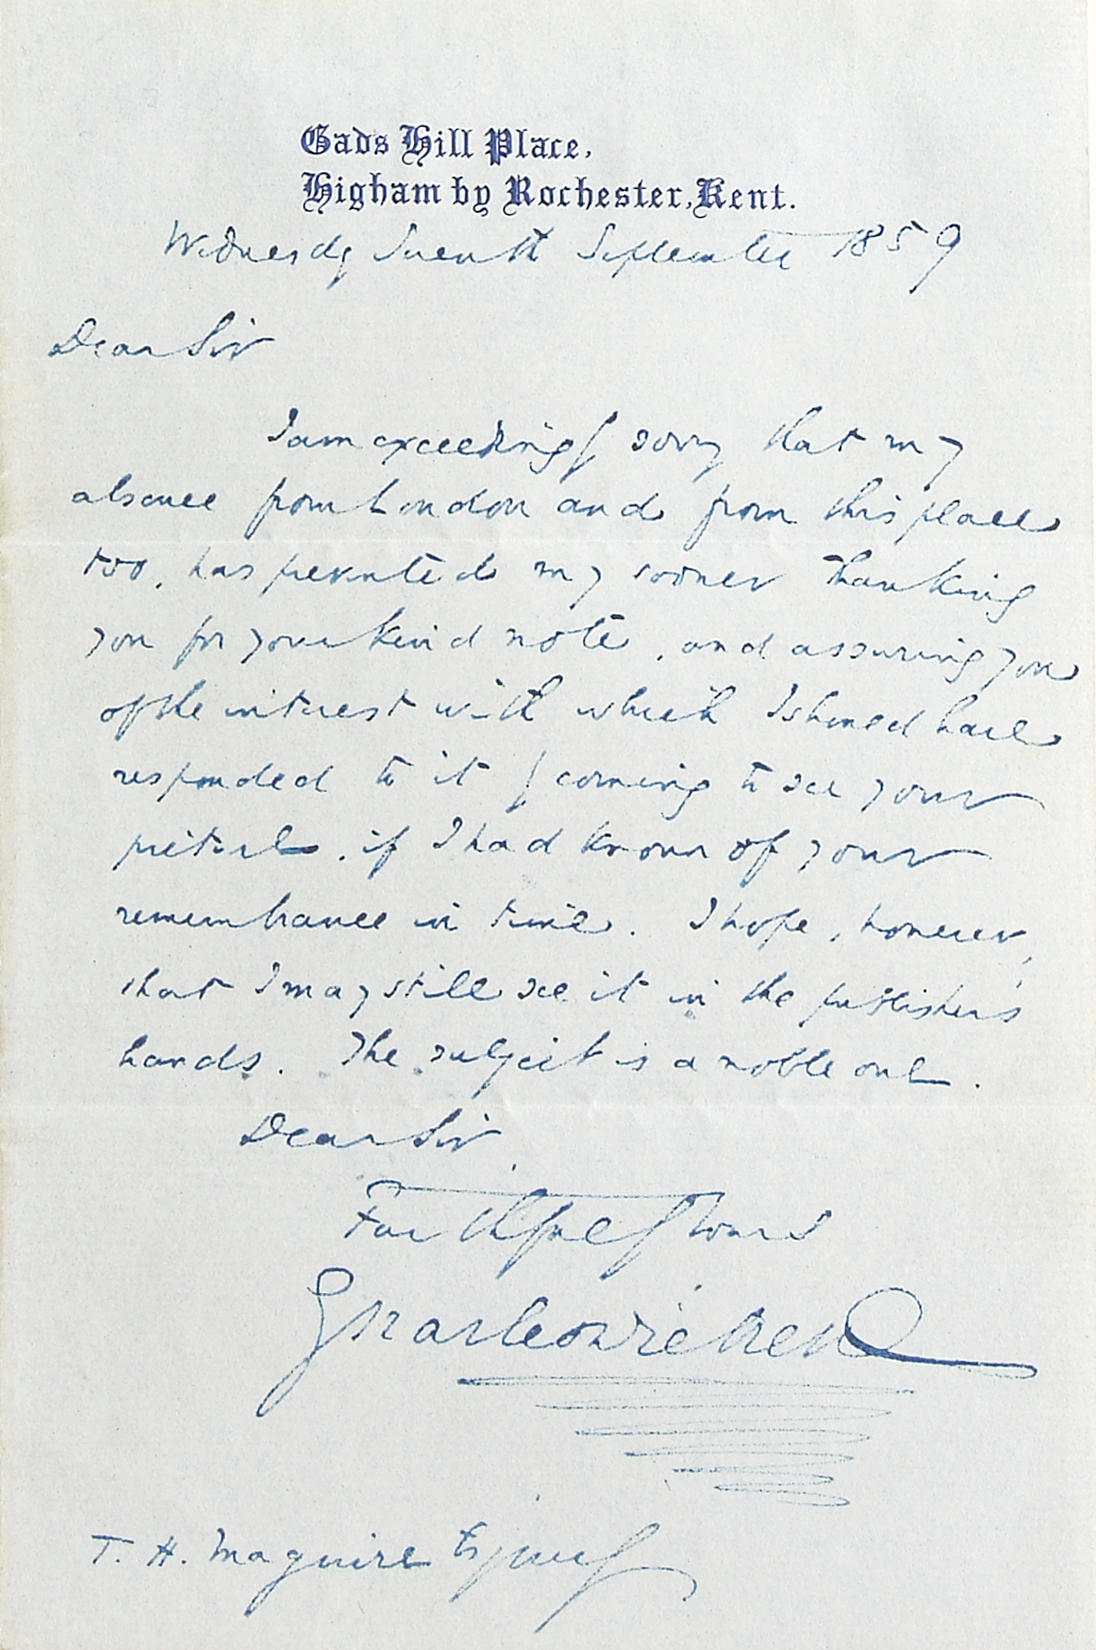 Gads Hill Place,
Higham by Rochester, Kent.
Wednesday Seventh September 1859
Dear Sir
I am exceedingly sorry that my
absence from London and from this place
too, has prevented my sooner thanking
you for your kind note, and assuring you
of the interest with which I should have
responded to it by coming to see your
picture, if I had known of your
remembrance in time. I hope, however,
that I may still see it in the publisher's
hands. The subject is a noble one.
Dear Sir
Faithfully Yours
Charles Dickens
T. H. Maguire Esquire